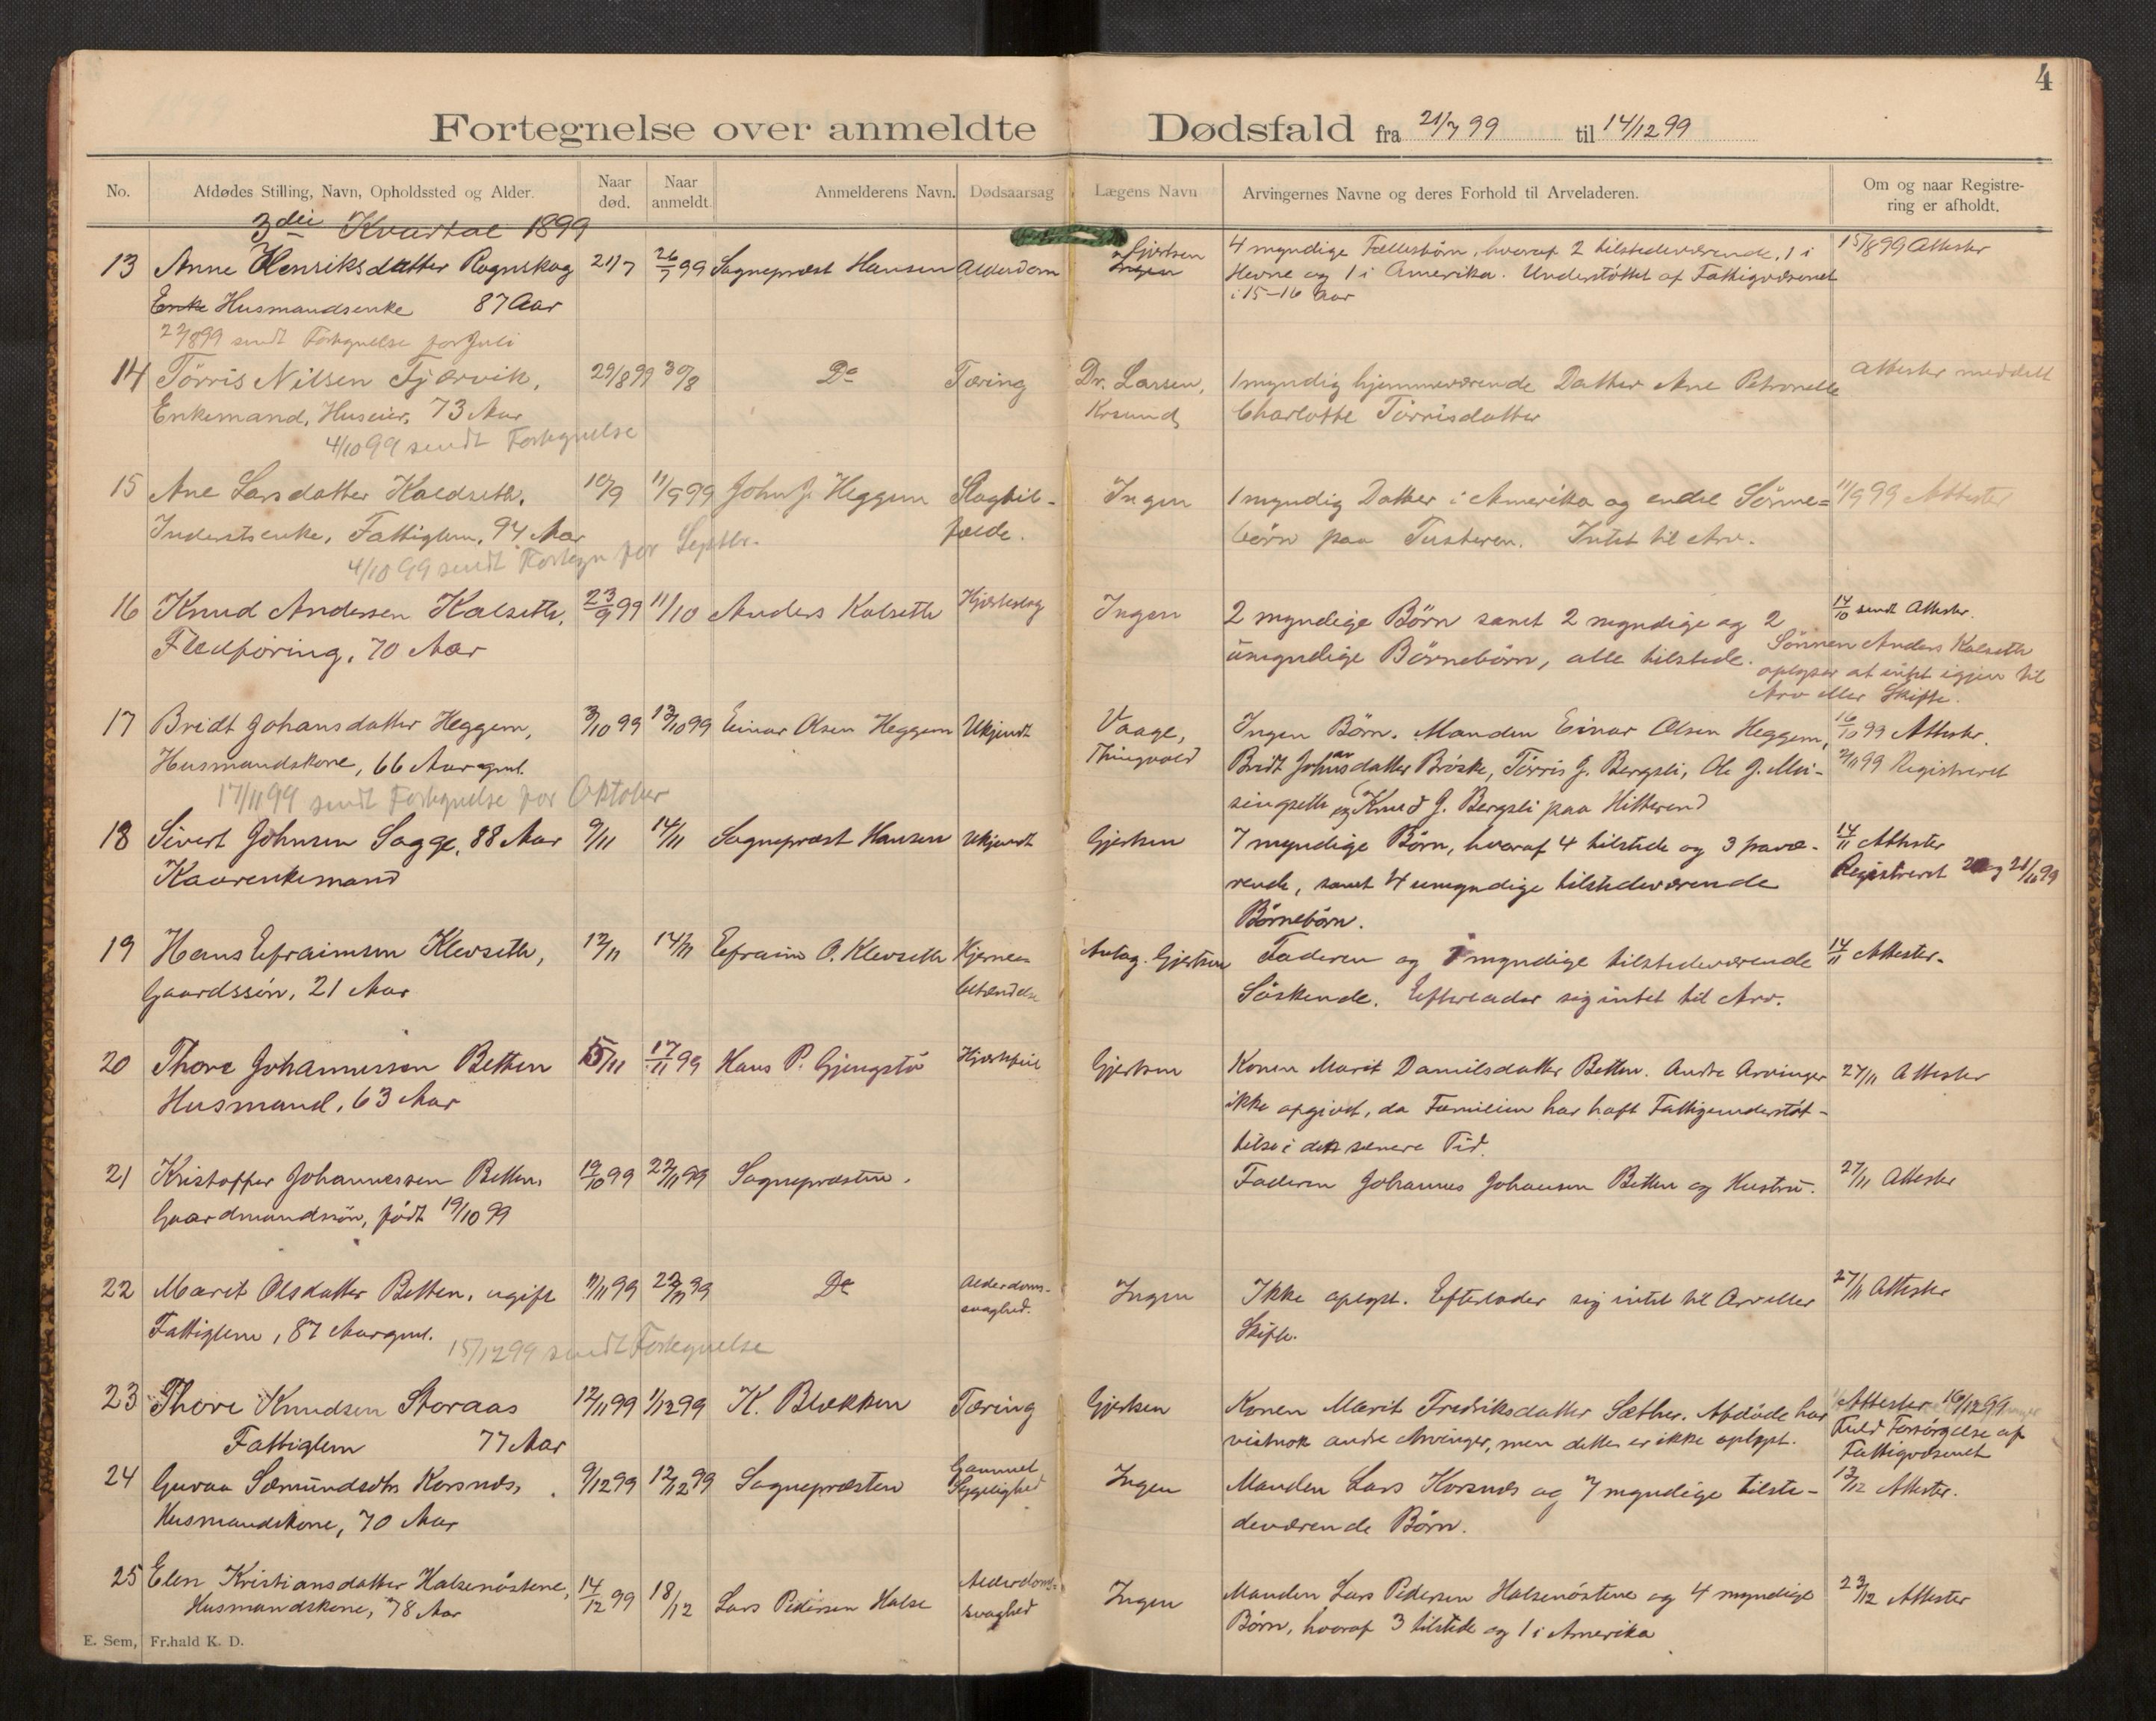 4
Fortegnelse over anmeldte Dødsfald fra 21/7 99 til 14/12 99
No. Afdødes Stilling, Navn, Opholdssted og Alder. Naar død. Naar anmeldt. Anmelderens Navn. Dødsaarsag Lægens Navn Arvingernes Navne og deres Forhold til Arveladeren. Om og naar Registrering er afholdt.
3die Kvartal 1899
13 Anne Henriksdatter Rognskog 21/7 26/7 99 Sognepræst Hansen Alderdom Gjertsen 4 myndige Fællesbörn, hvoraf 2 tilstedeværende, 1 i 15/8 99 Attester
Enke Husmandsenke 87 Aar Ingen Hevne og 1 i Amerika. Understöttet af Fattigvæsenet
i 15-16 Aar
22/8 99 sendt Fortegnelse for Juli
14 Törris Nilsen Fjærvik, 29/8 99 30/8 Do Tæring Dr. Larsen, 1 myndig hjemmeværende Datter Ane Petronelle Attester meddelt
Enkemand, Huseier, 73 Aar Krsund Charlotte Törrisdatter
4/10 99 sendt Fortegnelse
15 Ane Larsdatter Kaldseth, 10/9 11/9 99 John J. Heggem Slagtil- Ingen 1 myndig Datter i Amerika og endel Sönne= 11/9 99 Attester
Inderstsenke, Fattiglem, 94 Aar fælde. börn paa Tusteren. Intet til Arv.
4/10 99 sendt Fortegn for Septbr.
16 Knud Andersen Kalseth, 23/9 99 11/10 Anders Kalseth Hjerteslag Ingen 2 myndige Börn samt 2 myndige og 2 14/10 sendt Attester.
Flædföring, 70 Aar umyndige Börnebörn, alle tilstede. Sönnen Anders Kalseth
oplyser at intet igjen til
Arv eller Skifte.
17 Bridt Johansdatter Heggem, 3/10 99 13/10 99 Einar Olsen Heggem Ukjendt Vaage, Ingen Börn. Manden Einar Olsen Heggem, 16/10 99 Attester.
Husmandskone, 66 Aar gml. Thingvold Bridt Johansdatter Bröske, Törris J. Bergsli, Ole J. Mei- 2/11 99 Registreret
singseth og Knud J. Bergsli paa Hitterend
17/11 99 sendt Fortegnelse for Oktober
18 Sivert Johnsen Sagge, 88 Aar 9/11 14/11 Sognepræst Hansen Ukjendt Gjertsen 7 myndige Börn, hvoraf 4 tilstede og 3 fravæ- 14/11 Attester
Kaarenkemand rende, samt 4 umyndige tilstedeværende Registreret
Börnebörn.
19 Hans Efraimsen Klevseth, 12/11 14/11 Efraim O. Klevseth Hjerne= Antag. Gjertsen Faderen og 7 myndige tilstedeværende 14/11 Attester.
Gaardssön, 21 Aar betændelse Söskende. Efterlader sig intet til Arv.
20 Thore Johannessen Betten 15/11 17/11 99 Hans P. Gjengstö Hjertefeil Gjertsen Konen Marit Danielsdatter Betten. Andre Arvinger 27/11 Attester
Husmand, 63 Aar ikke opgivet, da Familien har haft Fattigunderstöt-
telse i den senere Tid.
21 Kristoffer Johannessen Betten, 19/10 99 22/11 99 Sognepræsten. Faderen Johannes Johansen Betten og Hustru. 27/11 Attester
Gaardmandssön, födt 19/10 99
22 Marit Olsdatter Betten, ugift 11/11 99 22/11 99 Do Alderdoms- Ingen Ikke oplyst. Efterlader sig intet til Arv eller 27/11 Attester
Fattiglem, 87 Aar gml. svaghed. Skifte.
15/12 99 sendt Fortegnelse
23 Thore Knudsen Storaas 12/11 99 1/12 99 K. Blekken Tæring Gjertsen Konen Marit Fredriksdatter Sæther. Afdöde har Attester 16/12 99
Fattiglem 77 Aar vistnok andre Arvinger, men dette er ikke oplyst. Fuld Forsörgelse af
Fattigvæsenet
24 Guraa Sæmundsdtr Korsnæs, 9/12 99 12/12 99 Sognepræsten Gammel Ingen Manden Lars Korsnæs og 7 myndige tilste- 13/12 Attester.
Husmandskone, 70 Aar Sygelighed deværende Börn.
25 Elen Kristiansdatter Halsenöstene, 14/12 99 18/12 Lars Pedersen Halse Alderdoms= Ingen Manden Lars Pedersen Halsenöstene og 4 myndige 23/12 Attester
Husmandskone, 78 Aar svaghed Börn, hvoraf 3 tilstede og 1 i Amerika
E. Sem, Fr.hald K. D.